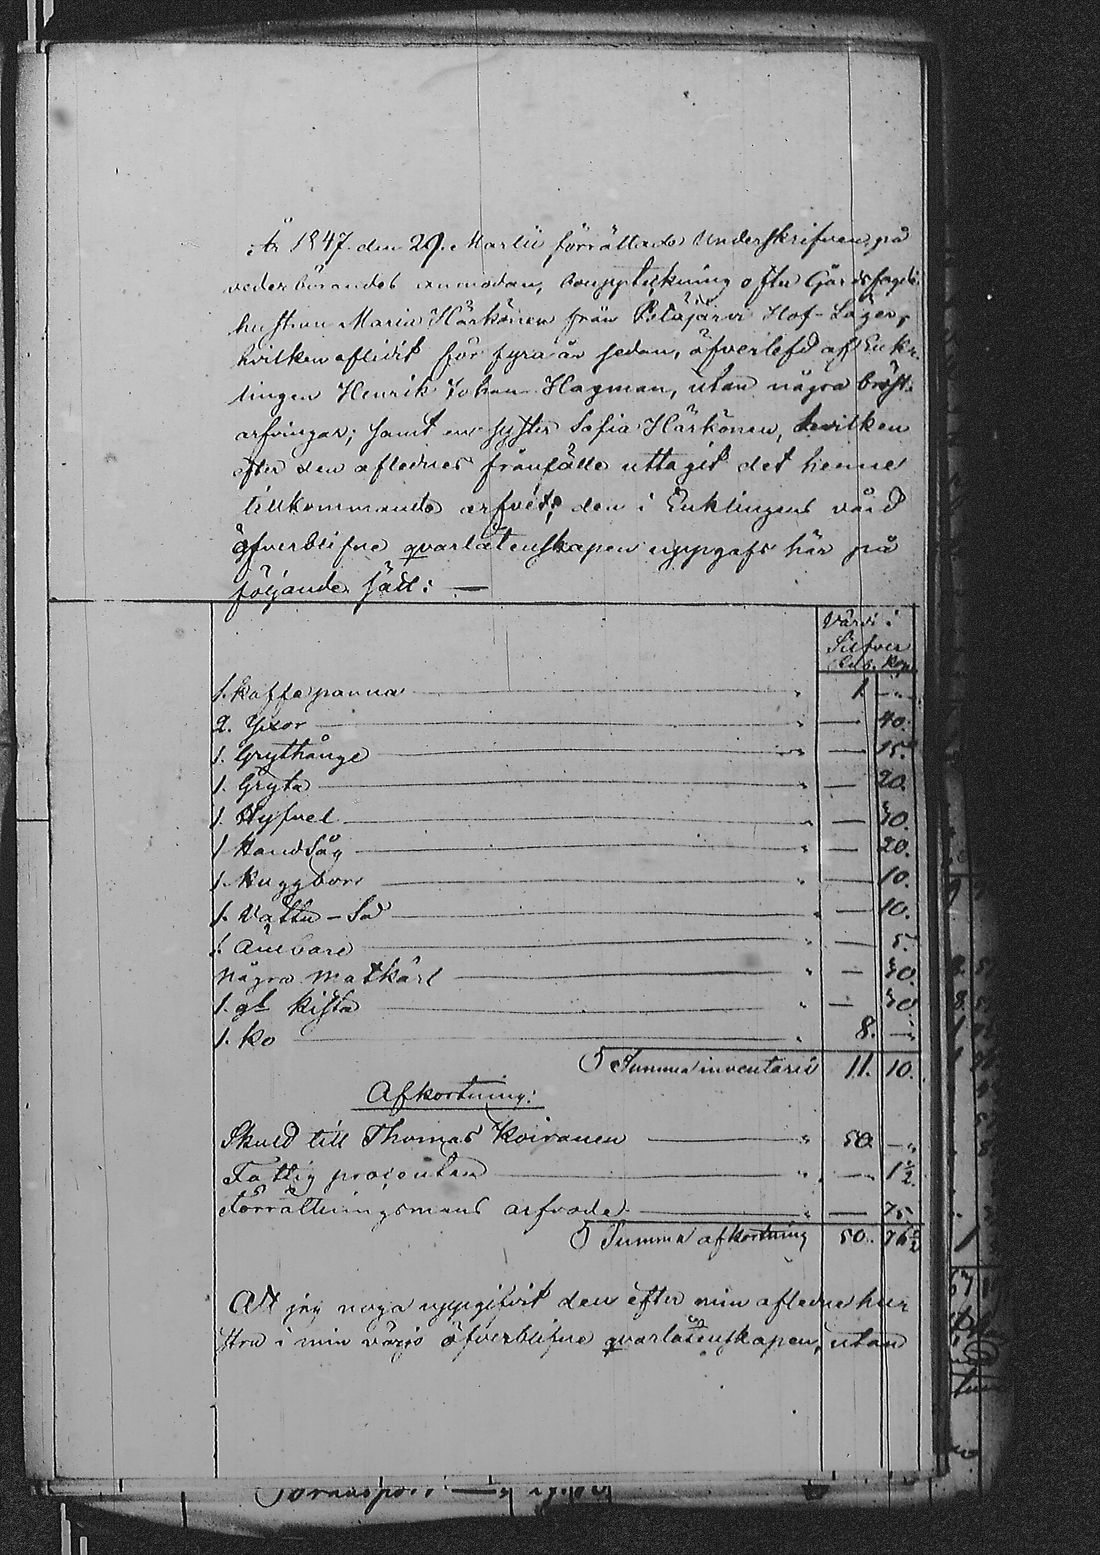 År 1847 den 29. Martii förrättade Underskrifven, på
vederbörandes anmodan, bouppteckning efter Gårdsfogde
hustrun Maria Härkönen från Petäjärvi Hof-Läger,
hvilken aflidit för fyra år sedan, öfverlefd af Enk-
lingen Henrik Johan Hagman, utan några bröst-
arfvingar; samt en syster Sofia Härkönen, hvilken
efter den aflednes frånfälle uttagit det henne
tillkommande arfvet; den i Enklingens vård
öfverblifne qvarlåtenskapen uppgafs här på
följande sätt: —
Värde i
Silfver
Rub. Kop.
1. Kaffepanna — " 1. — "
2. Yxor — " — 40.
1. Grythänge — " — 15.
1. Gryta — " — 20.
1. Hyfvel — " — 30.
1 Handsåg — " — 20.
1. Nuggbore — " — 10.
1. Vattu-Så — " — 10.
1. Ämbare — " — 5.
Några Matkärl — " — 30.
1. gl. Kista — " — 30
1. Ko — " 8. — "
Summa inventarii 11. 10.
Afkortning:
Skuld till Thomas Koiranen — " 50 — "
Fattig procenten — " — 1½
Förrättningsmans arfvode — " — 75.
Summa afkortning 50. 76½
Att jag noga uppgifvit den efter min aflednа hu-
stru i min värjo öfverblifne qvarlåtenskapen, utan